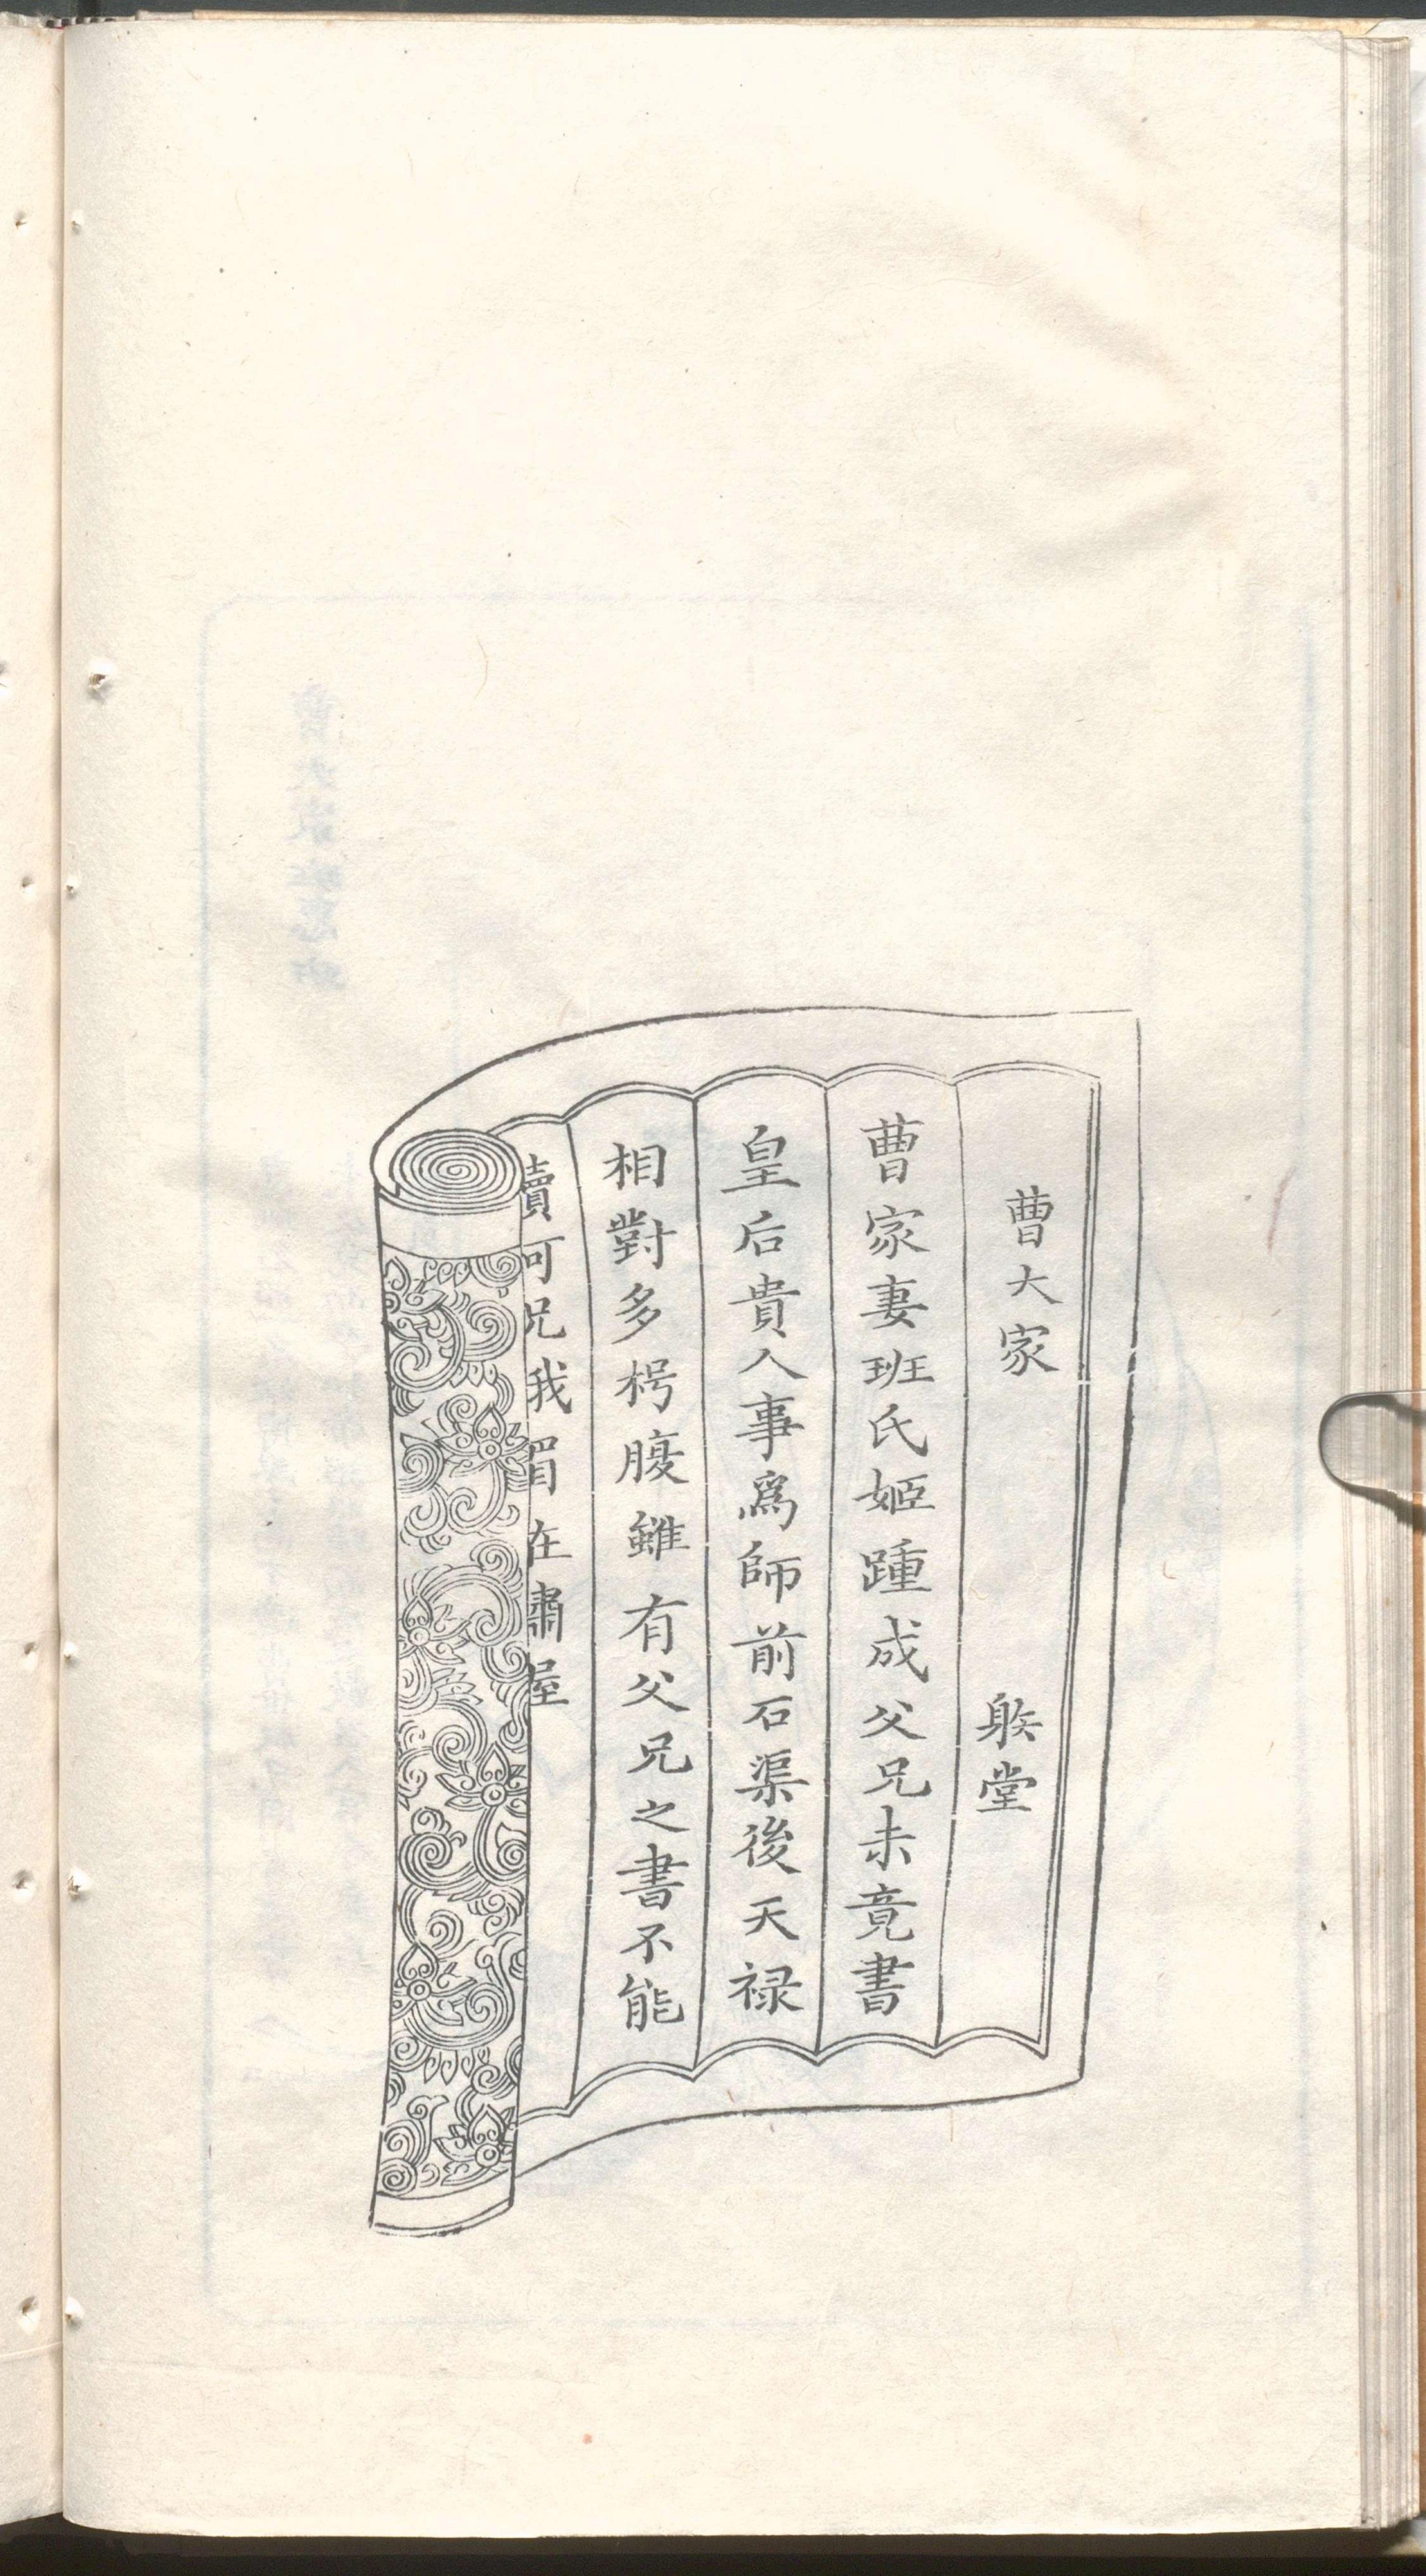 曹大家
䠶堂
曹家妻班氏姬踵成父兄未竟書
皇后貴人事爲師前石渠後天禄
相對多枵腹雖有父兄之書不能
讀何況蛾眉在繡屋